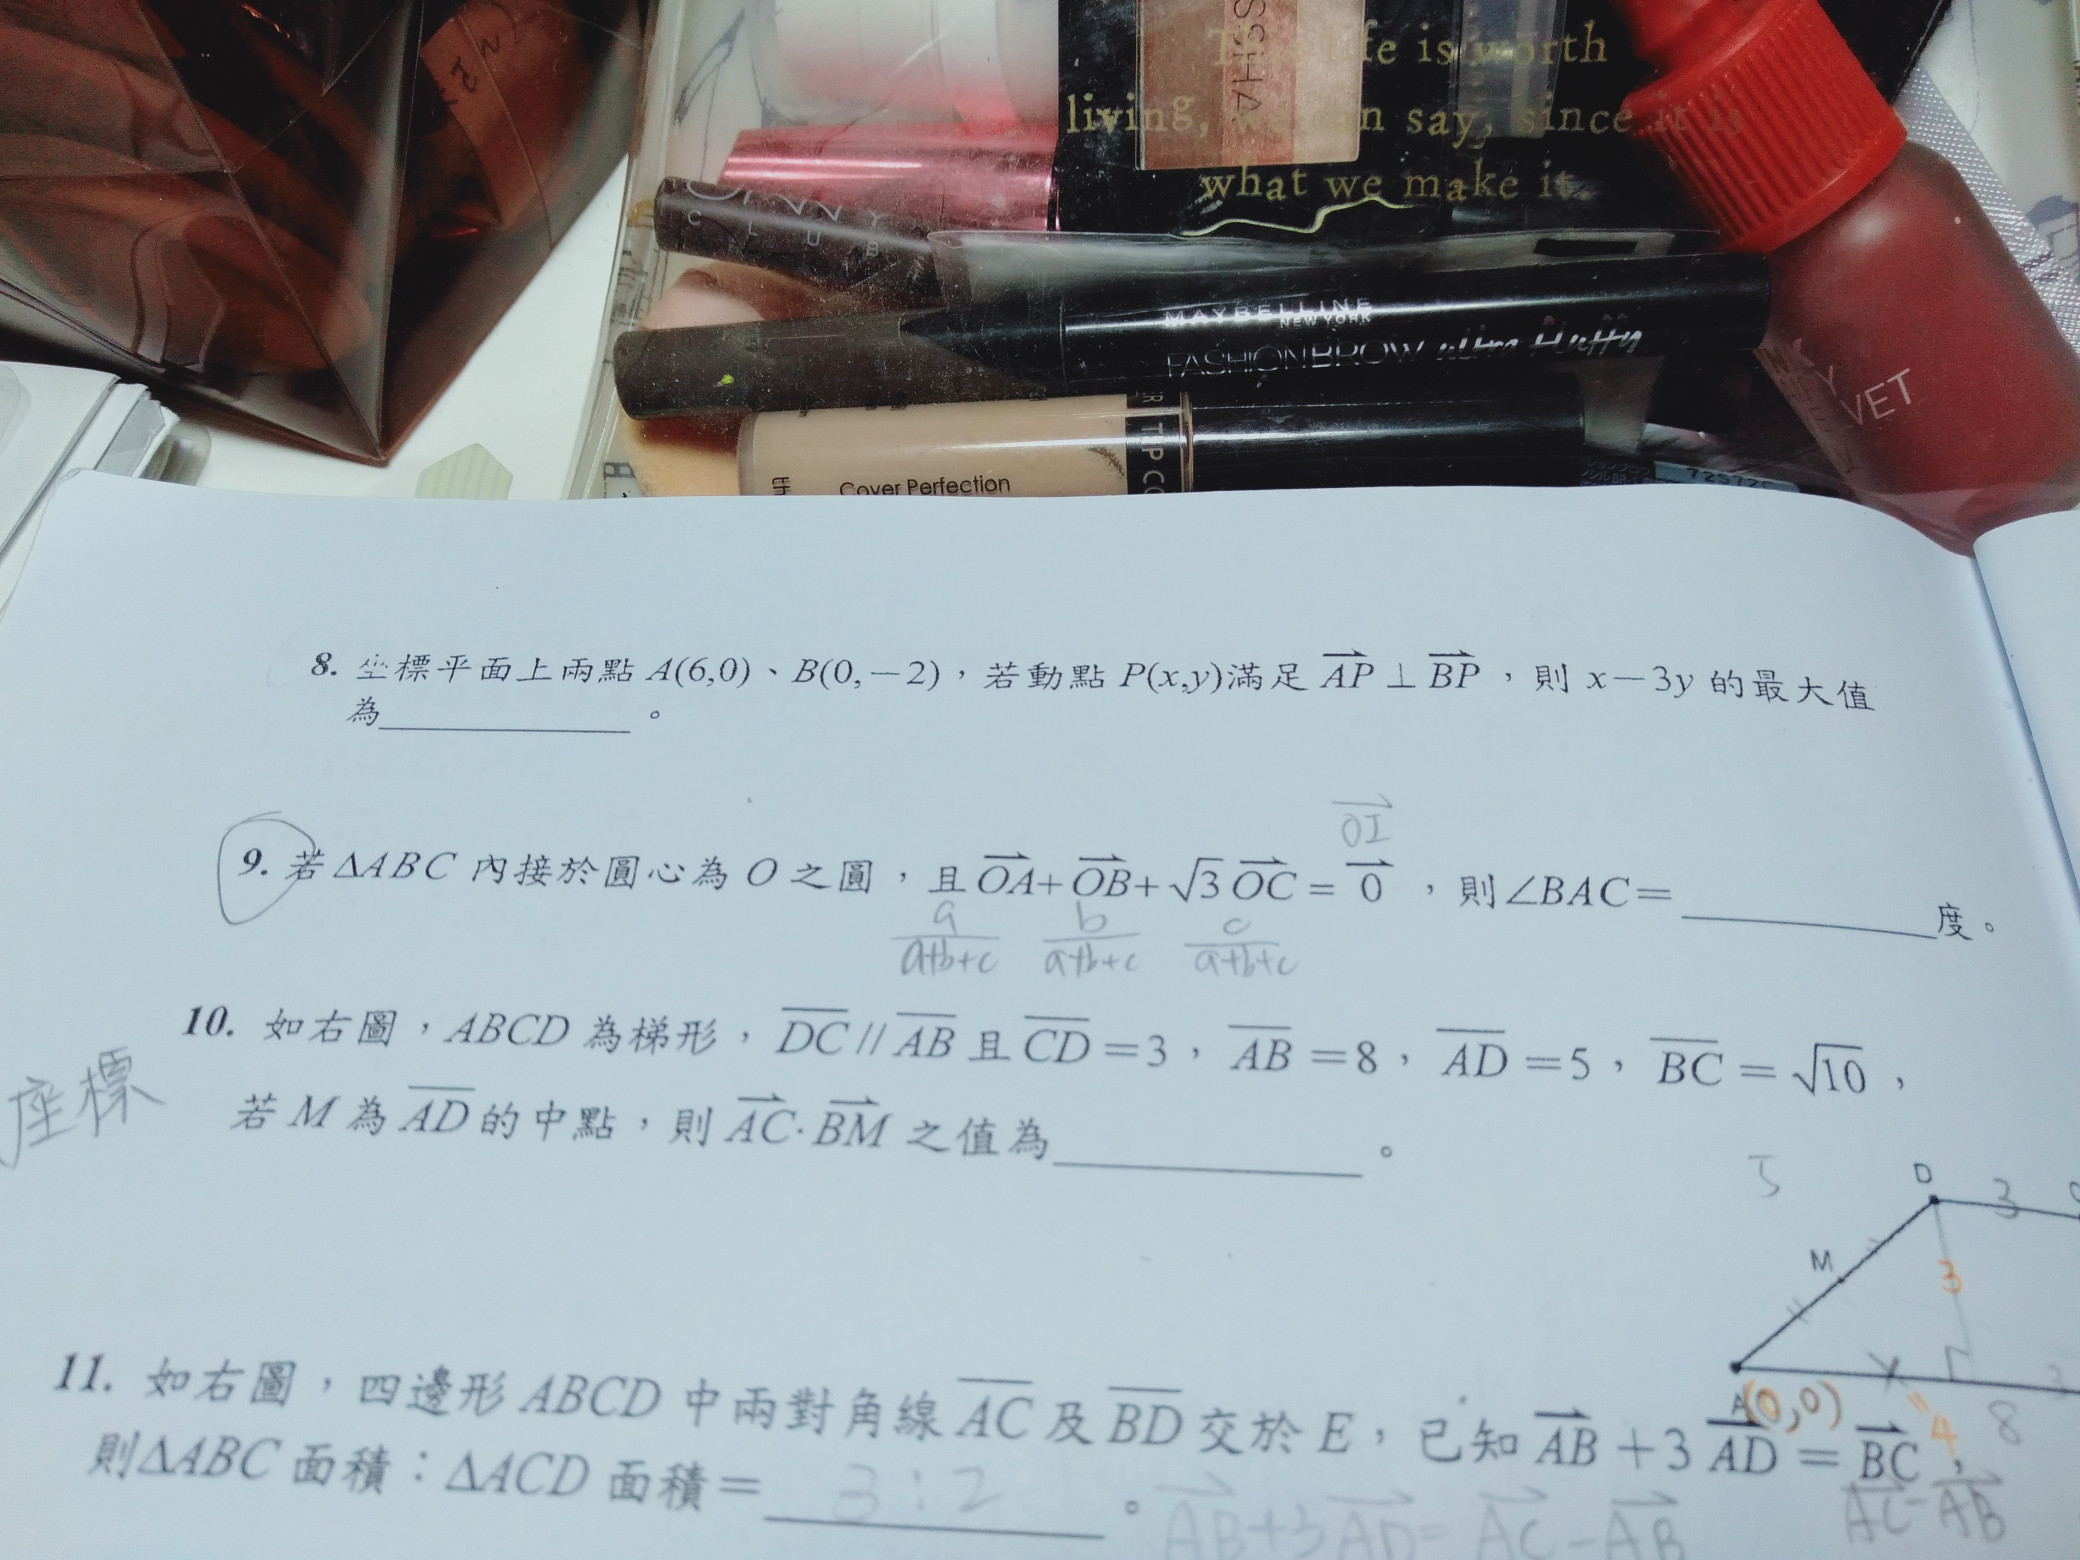 living,
say, since it is
what we make it.
CLUB
MAYBELLINE
NEW YORK
FASHIONBROW ultra fluffy
VET
TIP CO
Cover Perfection
8. 坐標平面上兩點 A(6,0)、B(0,－2)，若動點 P(x,y)滿足 AP ⊥ BP，則 x－3y 的最大值
為＿＿＿＿＿。
OI
9. 若 ΔABC 內接於圓心為 O 之圓，且 OA+OB+√3 OC = 0，則∠BAC=＿＿＿＿＿度。
a/a+b+c b/a+b+c c/a+b+c
10. 如右圖，ABCD 為梯形，DC // AB 且 CD =3，AB =8，AD =5，BC = √10，
座標
若 M 為 AD 的中點，則 AC·BM 之值為＿＿＿＿＿。
5
D 3
M 3
A(0,0) 4 8
11. 如右圖，四邊形 ABCD 中兩對角線 AC 及 BD 交於 E，已知 AB +3 AD = BC，
則ΔABC 面積：ΔACD 面積= 3:2 。
AC-AB
AB+3AD= AC-AB